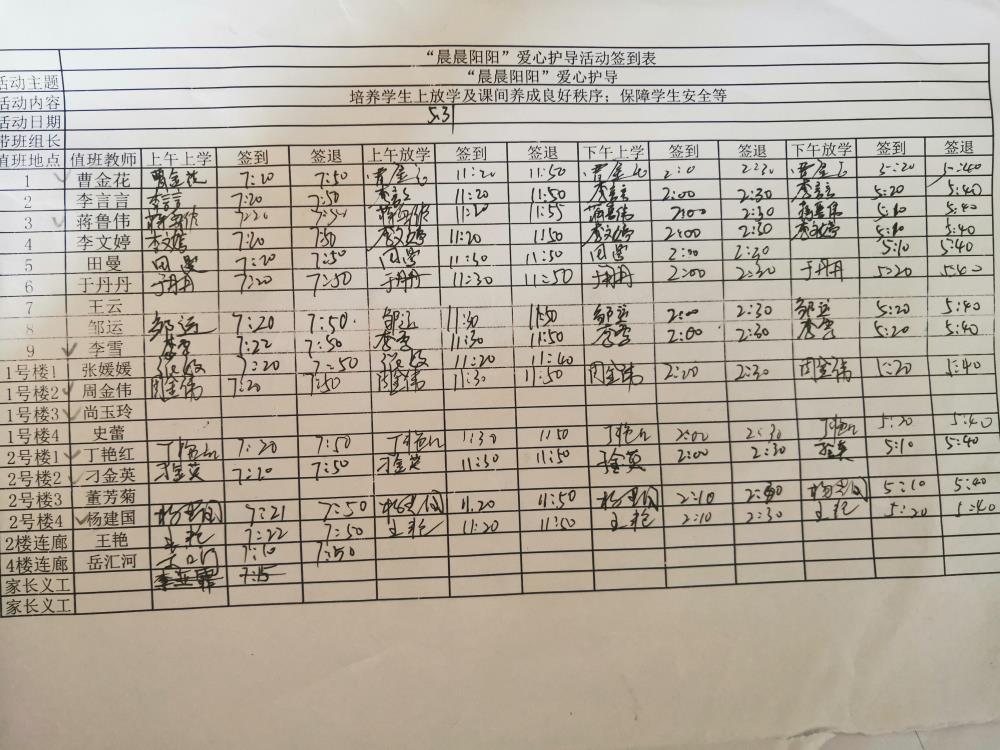 “晨晨阳阳”爱心护导活动签到表
活动主题 “晨晨阳阳”爱心护导
活动内容 培养学生上放学及课间养成良好秩序；保障学生安全等
活动日期 5.31
带班组长
值班地点 值班教师 上午上学 签到 签退 上午放学 签到 签退 下午上学 签到 签退 下午放学 签到 签退
1 曹金花 曹金花 7:20 7:50 曹金花 11:20 11:50 曹金花 2:30 曹金花 5:20 5:40
2 李言言 李言言 7:20 7:50 李言言 11:20 11:50 李言言 2:00 2:30 李言言 5:20 5:40
3 蒋鲁伟 蒋鲁伟 7:20 蒋鲁伟 11:20 11:55 蒋鲁伟 2:00 2:30 蒋鲁伟 5:10 5:40
4 李文婷 李文婷 7:20 7:50 李文婷 11:20 11:50 李文婷 2:00 2:30 李文婷 5:10 5:40
5 田曼 田曼 7:20 7:50 田曼 11:30 11:50 田曼 2:00 2:30 5:10 5:40
6 于丹丹 于丹丹 7:20 7:50 于丹丹 11:30 11:50 于丹丹 2:00 2:30 于丹丹 5:20 5:40
7 王云
8 邹运 邹运 7:20 7:50 邹运 11:50 邹运 2:00 2:30 邹运 5:20 5:40
9 李雪 李雪 7:22 7:50 李雪 11:30 11:50 李雪 2:00 2:30 李雪 5:20 5:40
1号楼1 张媛媛 7:20 7:50 11:20 11:40
1号楼2 周金伟 周金伟 7:20 7:50 周金伟 11:30 11:50 周金伟 2:20 2:30 周金伟 5:40
1号楼3 尚玉玲
1号楼4 史蕾
2号楼1 丁艳红 丁艳红 7:20 7:50 丁艳红 11:30 11:50 丁艳红 2:00 2:30 丁艳红 5:20 5:40
2号楼2 刁金英 刁金英 7:20 7:50 刁金英 11:30 11:50 刁金英 2:00 2:30 5:10 5:40
2号楼3 董芳菊
2号楼4 杨建国 杨建国 7:21 7:50 杨建国 11:20 11:50 杨建国 2:10 杨建国 5:10 5:40
2楼连廊 王艳 王艳 7:22 7:50 王艳 11:20 11:50 王艳 2:10 2:30 王艳 5:20 5:40
4楼连廊 岳汇河 7:10 7:50
家长义工 7:15
家长义工